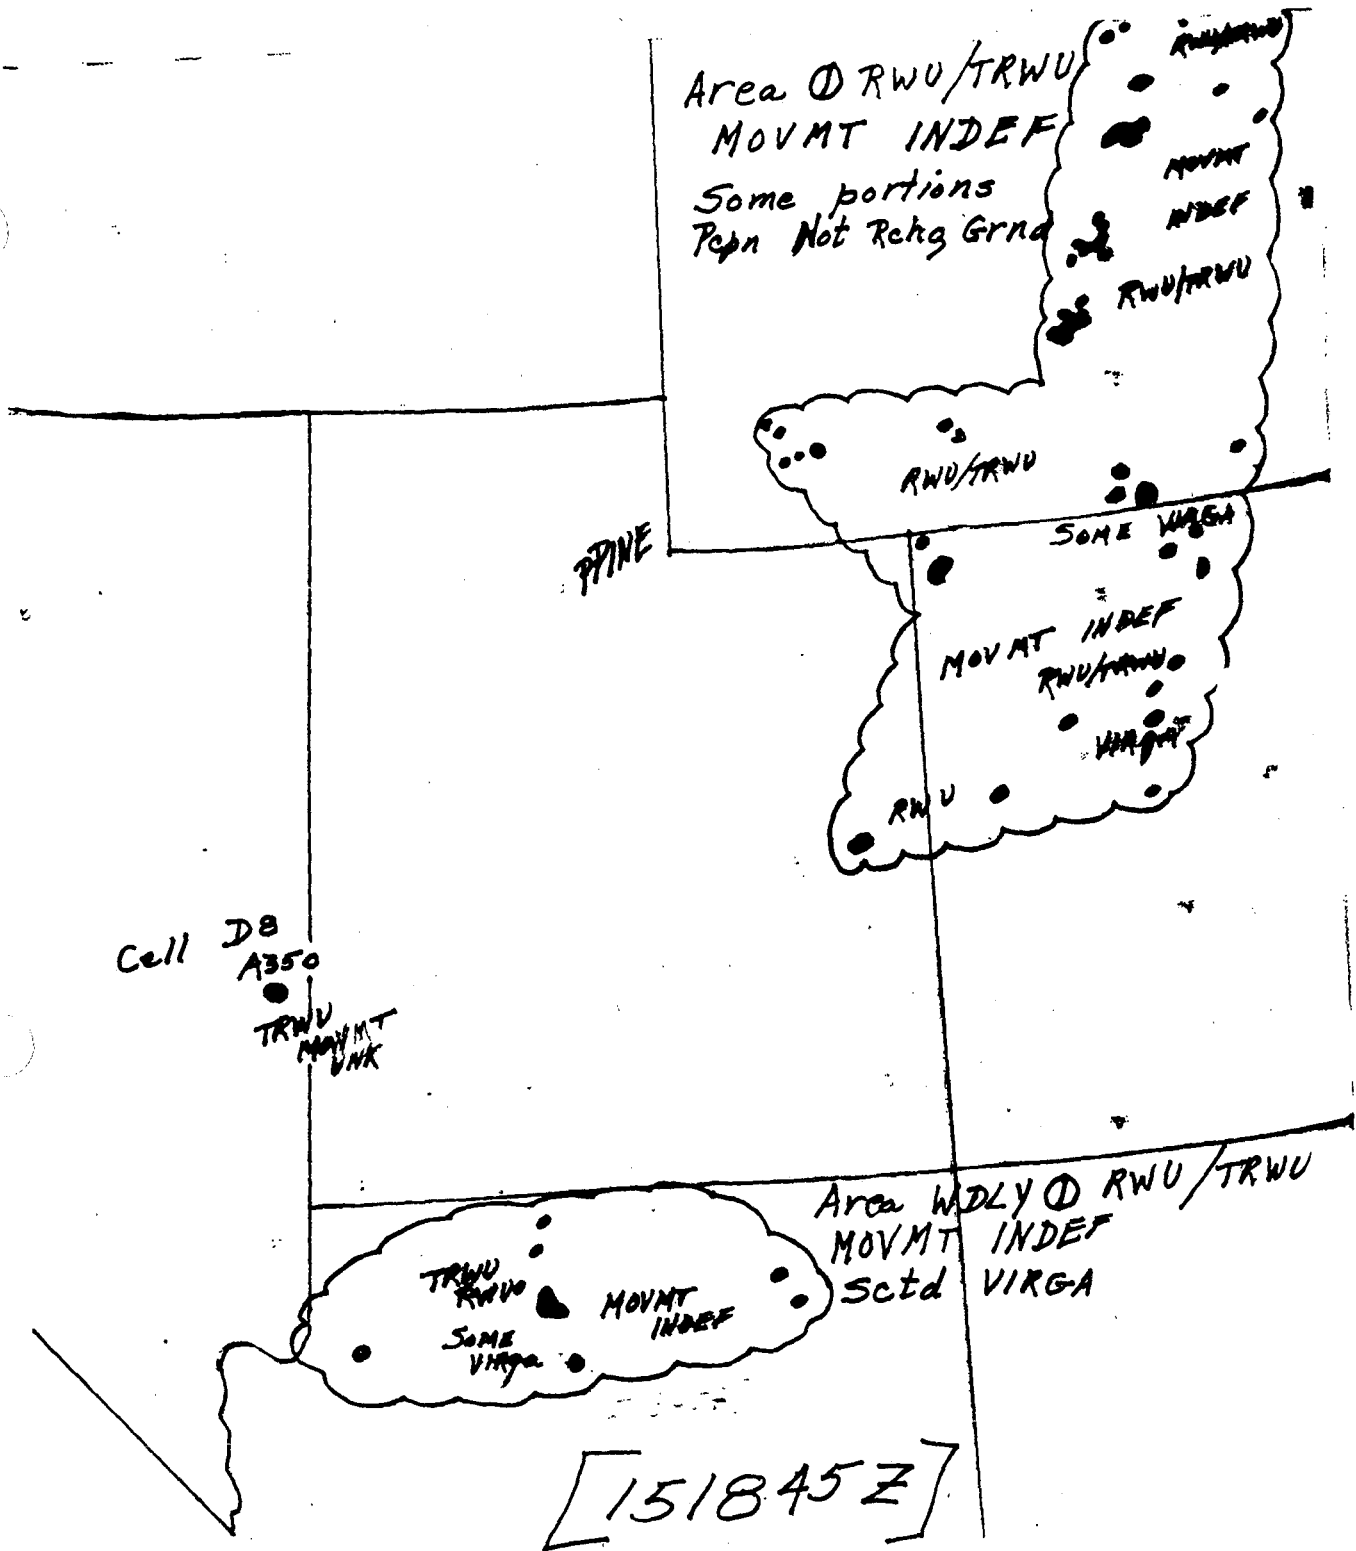 Area ① RWU/TRWU
MOVMT INDEF
Some portions
Pcpn Not Rchg Grnd
MOVMT
INDEF
RWU/TRWU
RWU/TRWU
SOME VIRGA
PPINE
MOVMT INDEF
RWU/TRWU
VIRGA
RWU
Cell D8
A350
TRWU
MOVMT
UNK
Area WDLY ① RWU/TRWU
MOVMT INDEF
Sctd VIRGA
TRWU
MOVMT
INDEF
SOME
VIRga
[151845Z]